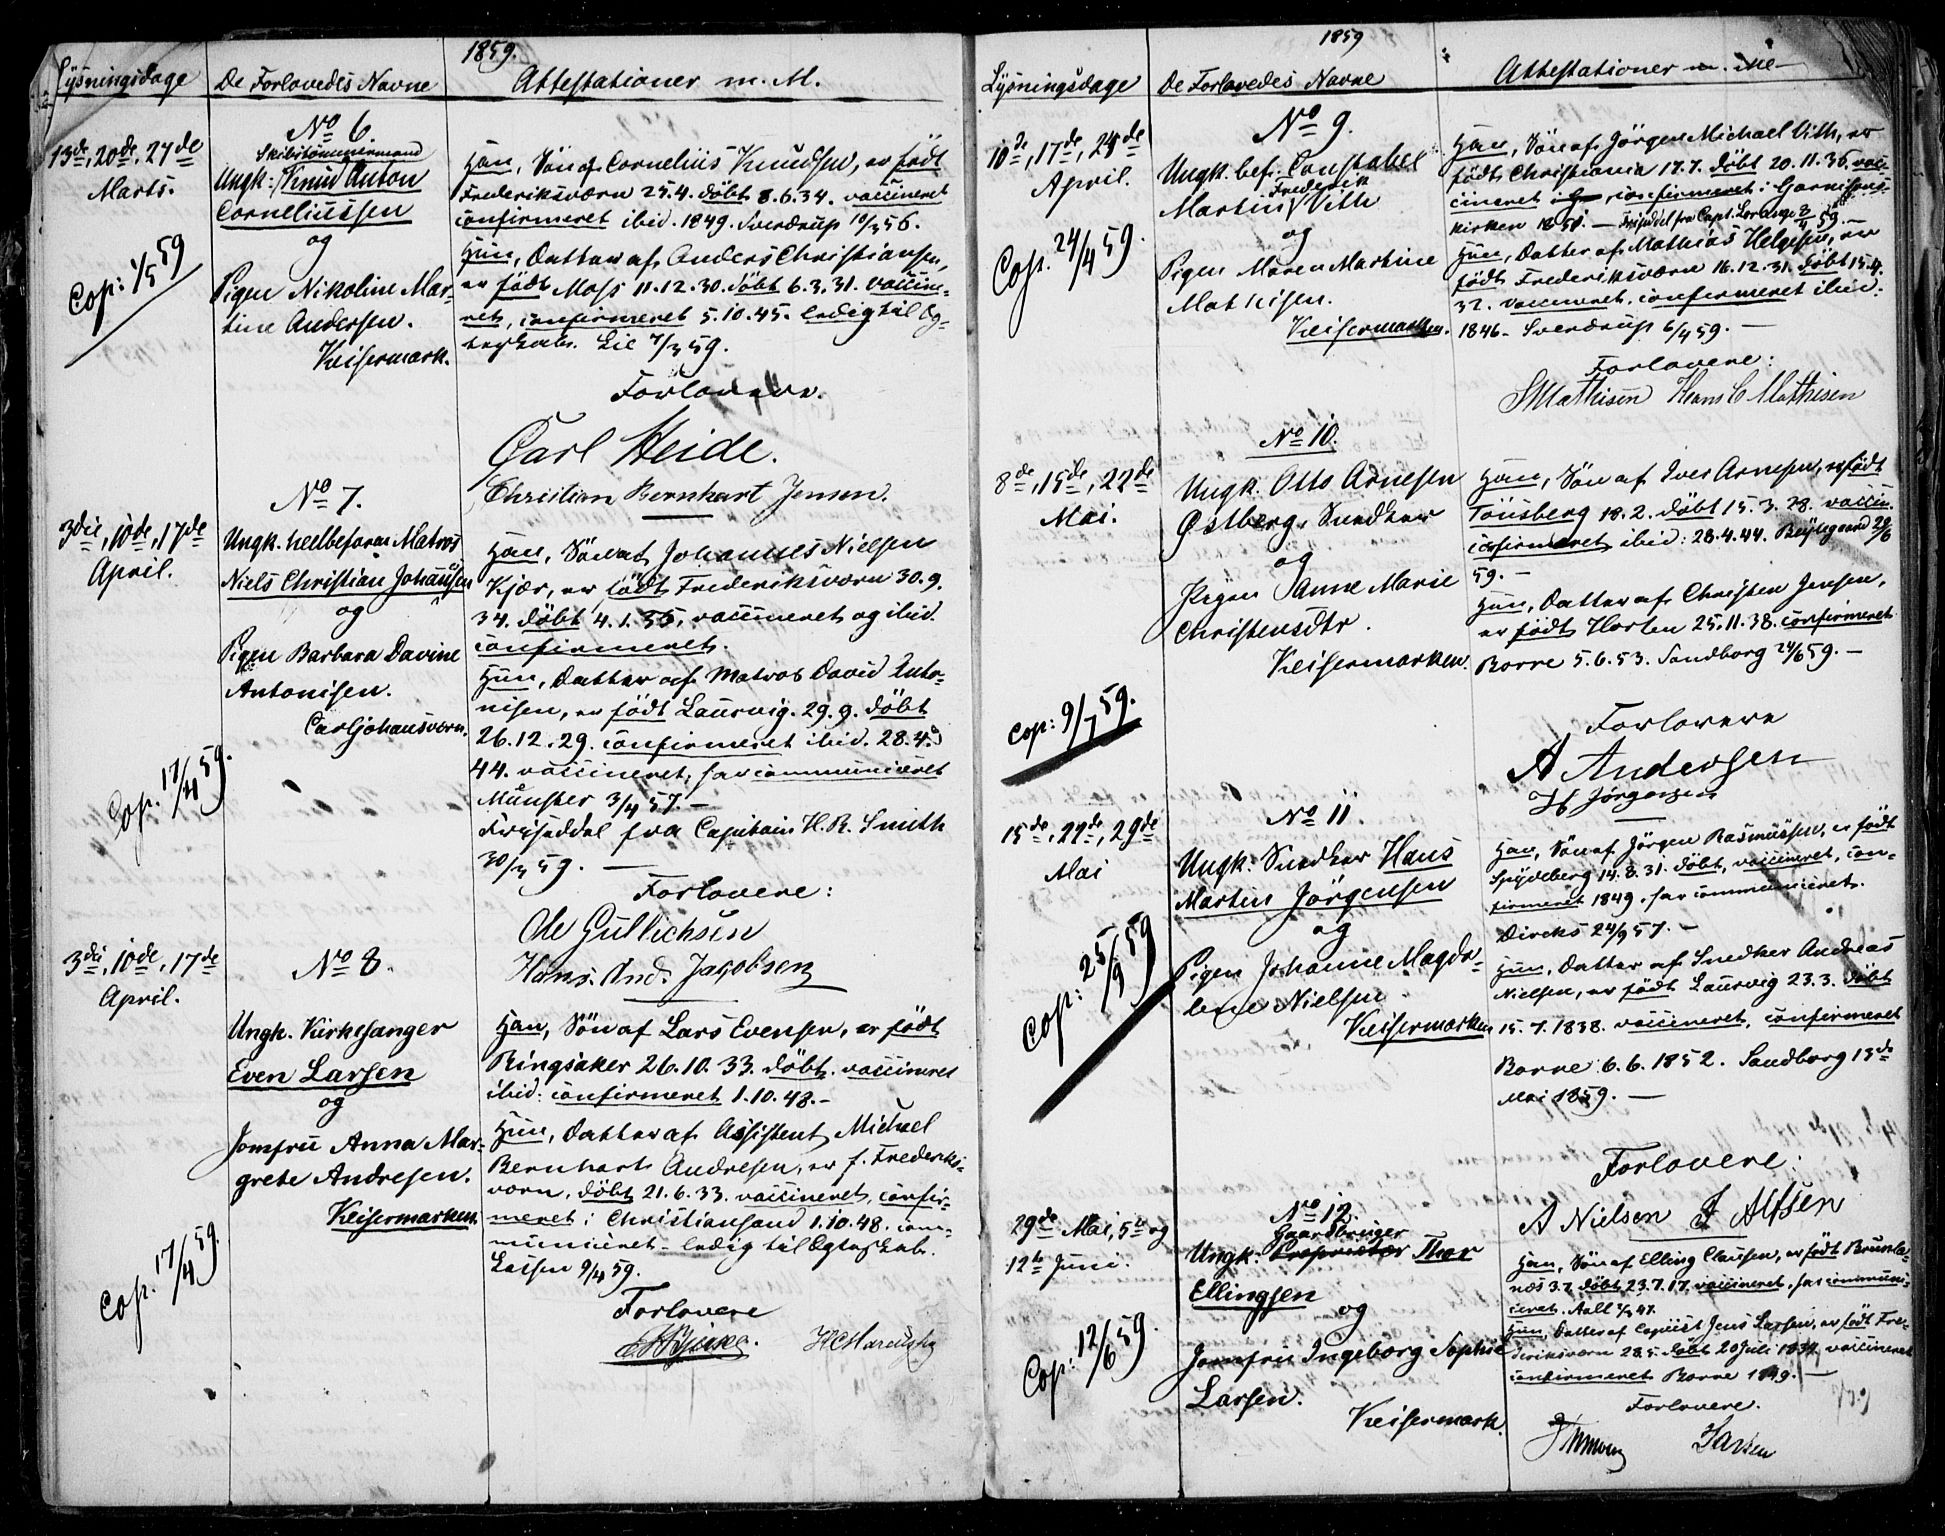 1859.
Lysningsdage
De Forlovedes Navne
Attestationer m. M.
No 6.
13de, 20de, 27de
Marts.
Skibstømmermand
Ungk: Knud Anton
Corneliussen
og
Pigen Nikoline Mar-
tine Andersen.
Keisermark.
Cop: 1/5 59
Han, Søn af Cornelius Knudsen, er født
Frederiksværn 25.4. døbt 8.6.34. vaccineret
confirmeret ibid. 1849. Sverdrup 10/3 56.
Hun, Datter af Anders Christiansen,
er født Moss 11.12.30. døbt 6.3.31. vaccine-
ret, confirmeret 5.10.45. ledig til Æg-
teskab. Lie 7/3 59.
Forlovere.
Carl Heide.
Christian Bernhart Jensen.
No 7.
3die, 10de, 17de
April.
Ungk. heelbefaren Matros
Niels Christian Johansen
og
Pigen Barbara Davine
Antonisen.
Carljohansværn.
Cop. 17/4 59.
Han, Søn af Johannes Nielsen
Kjær, er født Frederiksværn 30.9.
34. døbt 4.1.35, vaccineret og ibid.
confirmeret.
Hun, Datter af Matros David Anto-
nisen, er født Laurvig. 29.9. døbt
26.12.29. confirmeret ibid. 28.4.
44. vaccineret, har communiceret
Münster 3/4 57. —
Friseddel fra Capitain H. R. Smith
30/3 59. —
Forlovere:
Ole Gullichsen
Hans. And. Jacobsen
No 8.
3die, 10de, 17de
April.
Ungk. Kirkesanger
Even Larsen
og
Jomfru Anna Mar-
grete Andresen.
Keisermarken.
Cop. 17/4 59.
Han, Søn af Lars Evensen, er født
Ringsaker 26.10.33. døbt. vaccineret
ibid: confirmeret 1.10.48.-
Hun, Datter af Assistent Michael
Bernhart Andresen, er f. Frederiks-
værn, døbt 21.6.33. vaccineret, confir-
meret i Christiansand 1.10.48. com-
municeret - ledig til Ægteskab.
Lassen 9/4 59.
Forlovere
1859
Lysningsdage
De Forlovedes Navne
Attestationer m. Me
No 9.
10de, 17de, 24de
April.
Ungk. bef. Constabel
Frederik
Martin Vith
og
Pigen Maren Martine
Mathisen.
Keisermarken.
Cop. 24/4 59.
Han, Søn af Jørgen Michael Vith, er
født Christiania 17.7. døbt 20.11.36. vac-
cineret i confirmeret i Garnisons-
kirken 1851. — Friseddel fra Capt. 8/4 59. —
Hun, Datter af Mathias Helgesen, er
født Frederiksværn 16.12.31. døbt 15.4.
32. vaccineret, confirmeret ibid:
1846. Sverdrup 6/4 59. —
Forlovere:
SMathisen Hans C Mathisen
No 10.
8de, 15de, 22de
Mai.
Ungk. Otto Arnesen
Østberg, Snedker
og
Pigen Anne Marie
Christensdtr.
Keisermarken.
Cop: 9/7 59.
Han, Søn af Iver Arnesen, er født
Tønsberg 18.2. døbt 15.3.28. vaccin.
confirmeret ibid: 28.4.44. 29/6
59.-
Hun, Datter af Christen Jensen,
er født Horten 25.11.38. confirmeret
Borre 5.6.53. Sandborg 24/6 59. —
Forlovere
A Andersen
H Jørgensen
No 11.
15de, 22de, 29de
Mai
Ungk: Snedker Hans
Martin Jørgensen
og
Pigen Johanne Magda-
lene Nielsen
Keisermarken
Cop: 25/9 59
Han, Søn af Jørgen Rasmussen, er født
Spydeberg 14.8.31. døbt, vaccineret, con-
firmeret 1849, har communiceret.
Dircks 24/9 57. —
Hun, Datter af Snedker Andreas
Nielsen, er født Laurvig 23.3. døbt
15.7.1838. vaccineret, confirmeret
Borre 6.6.1852. Sandborg 13de
Mai 1859. —
Forlovere:
A Nielsen
No 12.
29de Mai, 5te og
12te Juni.
Gaardbruger
Ungk: Proprietær Thor
Ellingsen
og
Jomfru Ingeborg Sophie
Larsen.
Keisermark.
Cop: 12/6 59.
Han, Søn af Elling Clausen, er født Brunla-
næs 3.7. døbt 23.7.17. vaccineret, har communi-
ceret. Aall
Hun, Datter af Copiist Jens Larsen, er født Fre-
deriksværn 28.5. døbt 20 Juli vaccineret
confirmeret Borre 1849. —
Forlovere.
Larsen